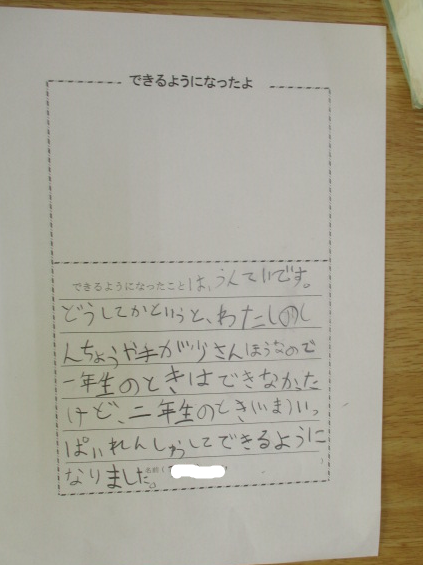 できるようになったよ
できるようになったことは、うんていです。
どうしてかというと、わたしのし
んちょうや手が少さんほうなので
一年生のときはできなかった
けど、二年生のとき(いま)いっ
ぱいれんしゅうしてできるように
なりました。名前( )